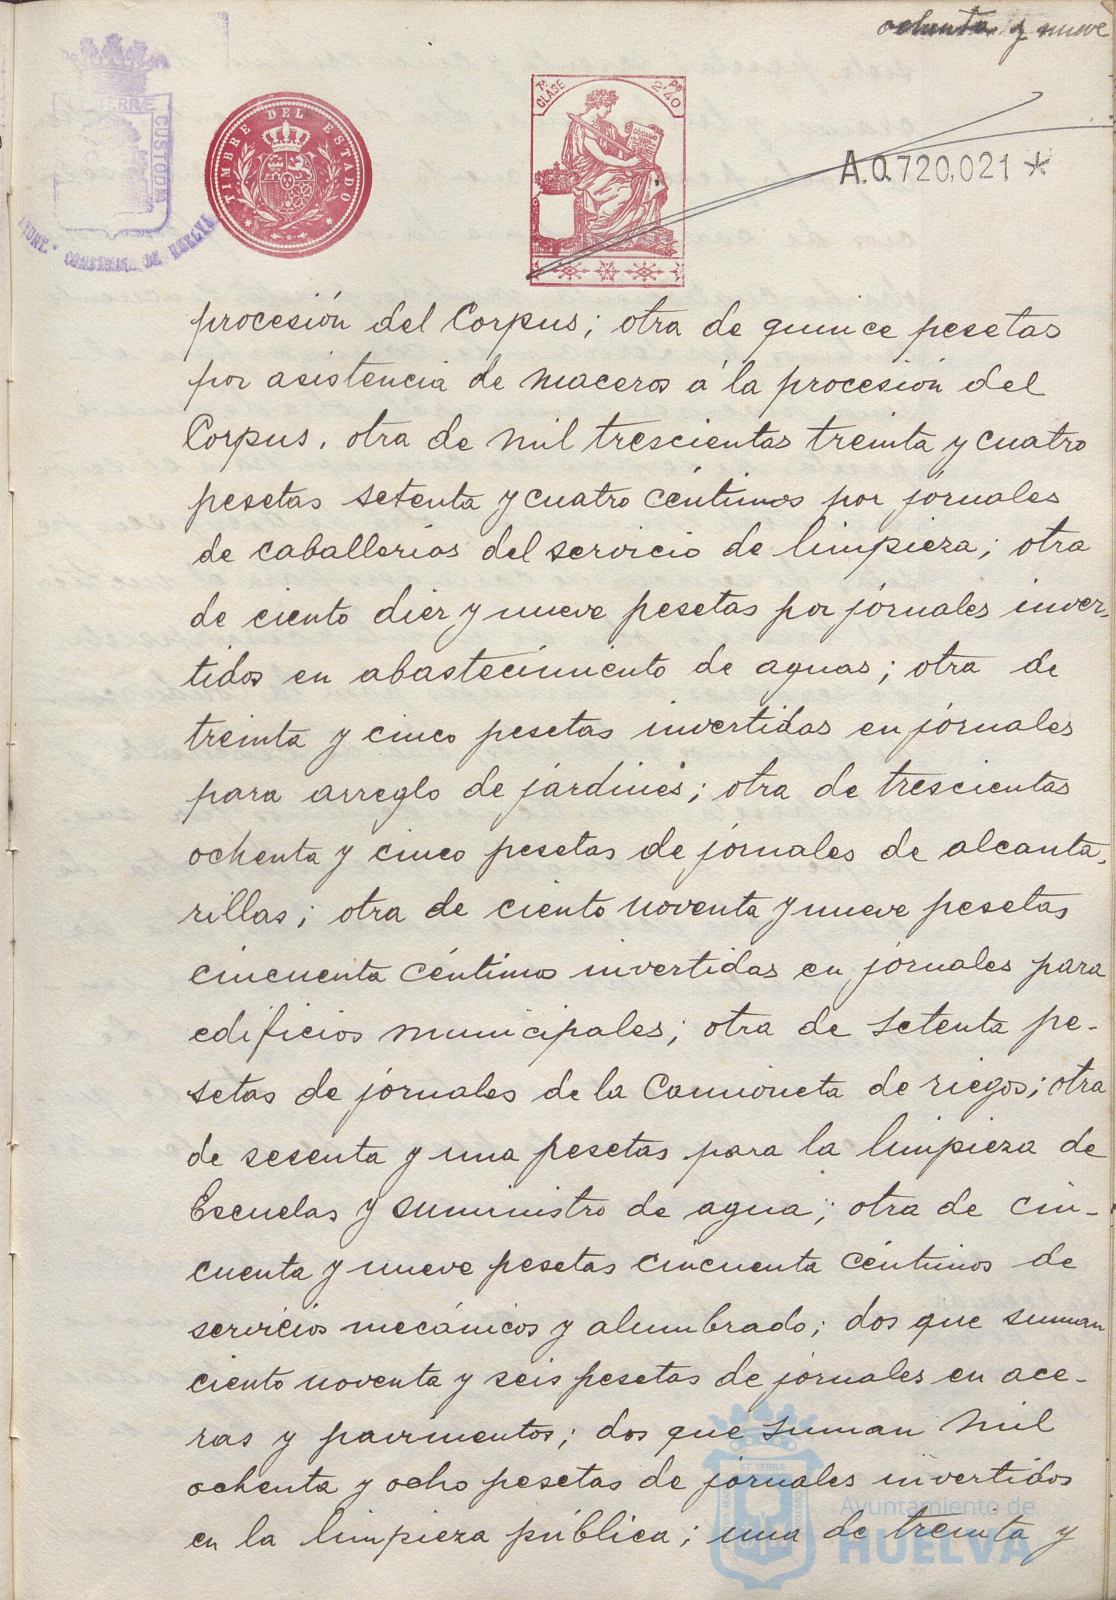 ochenta y nueve
TERRÆ CUSTODIA
AYUNT. DE HUELVA
TIMBRE DEL ESTADO
7ª CLASE
2'40
CODIGO
A.0.720,021 *
procesión del Corpus; otra de quince pesetas
por asistencia de maceros á la procesión del
Corpus. otra de mil trescientas treinta y cuatro
pesetas setenta y cuatro céntimos por jornales
de caballerías del servicio de limpieza; otra
de ciento diez y nueve pesetas por jornales inver-
tidos en abastecimiento de aguas; otra de
treinta y cinco pesetas invertidas en jornales
para arreglo de jardines; otra de trescientas
ochenta y cinco pesetas de jornales de alcanta-
rillas; otra de ciento noventa y nueve pesetas
cincuenta céntimos invertidas en jornales para
edificios municipales; otra de setenta pe-
setas de jornales de la Camioneta de riegos; otra
de sesenta y una pesetas para la limpieza de
Escuelas y suministro de agua; otra de cin-
cuenta y nueve pesetas cincuenta céntimos de
servicios mecánicos y alumbrado; dos que suman
ciento noventa y seis pesetas de jornales en ace-
ras y pavimentos; dos que suman mil
ochenta y ocho pesetas de jornales invertidos
en la limpieza pública; una de treinta y
Ayuntamiento de
HUELVA